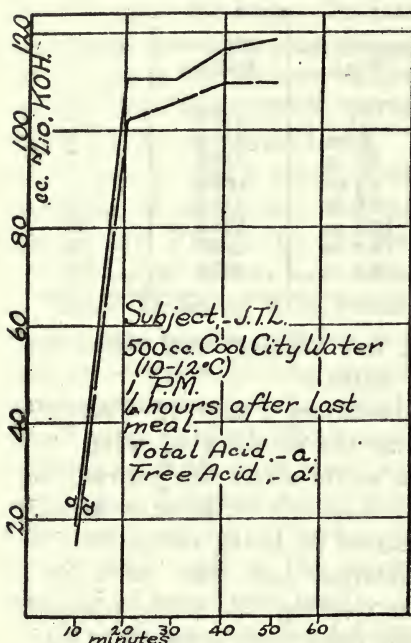 120
cc. N/10. KOH.
100
80
60
40
20
Subject,- J.T.L.
500 cc. Cool City Water
(10-12°C)
1, P.M.
hours after last
meal.
Total Acid.,- a.
Free Acid.,- a'.
a
a'
10 20 30 40 50 60
minutes